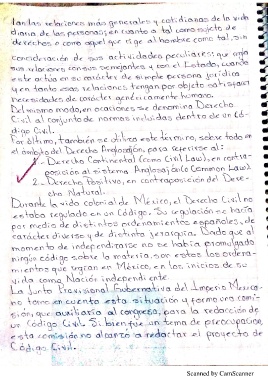 lan las relaciones más generales y cotidianas de la vida
diaria, de las personas, en cuanto a tal como sujeto de
derechos o como aquel que rige al hombre como tal, sin
consideración de sus actividades peculiares: que rija
sus relaciones con sus semejantes y con el Estado, cuando
este actúa en su carácter de simple persona jurídica
y en tanto esas relaciones tengan por objeto satisfacer
necesidades de carácter genéricamente humano.
Del mismo modo, en ocasiones se denomina Derecho
Civil al conjunto de normas incluidas dentro de un Có-
digo Civil.
Por último, también se utiliza este término, sobre todo en
el ámbito del Derecho Anglosajón, para referirse al:
1.- Derecho Continental (como Civil Law), en contra-
posición al sistema Anglosajón (o Common Law)
2.- Derecho Positivo, en contraposición del Dere-
cho Natural.
Durante la vida colonial de México, el Derecho Civil no
estaba regulado en un Código. Su regulación se hacía
por medio de distintos ordenamientos españoles, de
carácter diversos y de distinta jerarquía. Dado que al
momento de independizarse no se había promulgado
ningún código sobre la materia, son estos los ordena-
mientos que regían en México, en los inicios de su
vida como Nación independiente.
La Junta Provisional Gubernativa del Imperio Mexica-
no tomo en cuenta esta situación y formo una comi-
sión que auxiliaría al congreso, para la redacción de
un Código Civil. Si bien fue un tema de preocupación,
esta comisión no alcanzo a redactar el proyecto de
Código Civil.
Scanned by CamScanner